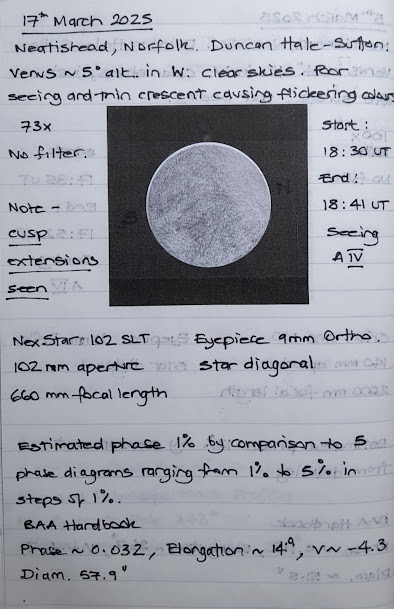 17th March 2025
Neatishead, Norfolk. Duncan Hale-Sutton.
Venus ~ 5° alt. in W. Clear skies. Poor
seeing and thin crescent causing flickering colours
73x
No filter.
Note -
cusp
extensions
seen
S
N
Start:
18:30 UT
End:
18:41 UT
Seeing
A IV
NexStar 102 SLT Eyepiece 9mm Ortho.
102 mm aperture star diagonal
660 mm focal length
Estimated phase 1% by comparison to 5
phase diagrams ranging from 1% to 5% in
steps of 1%.
BAA Handbook
Phase ~ 0.032, Elongation ~ 14°, V ~ -4.3
Diam. 57.9"